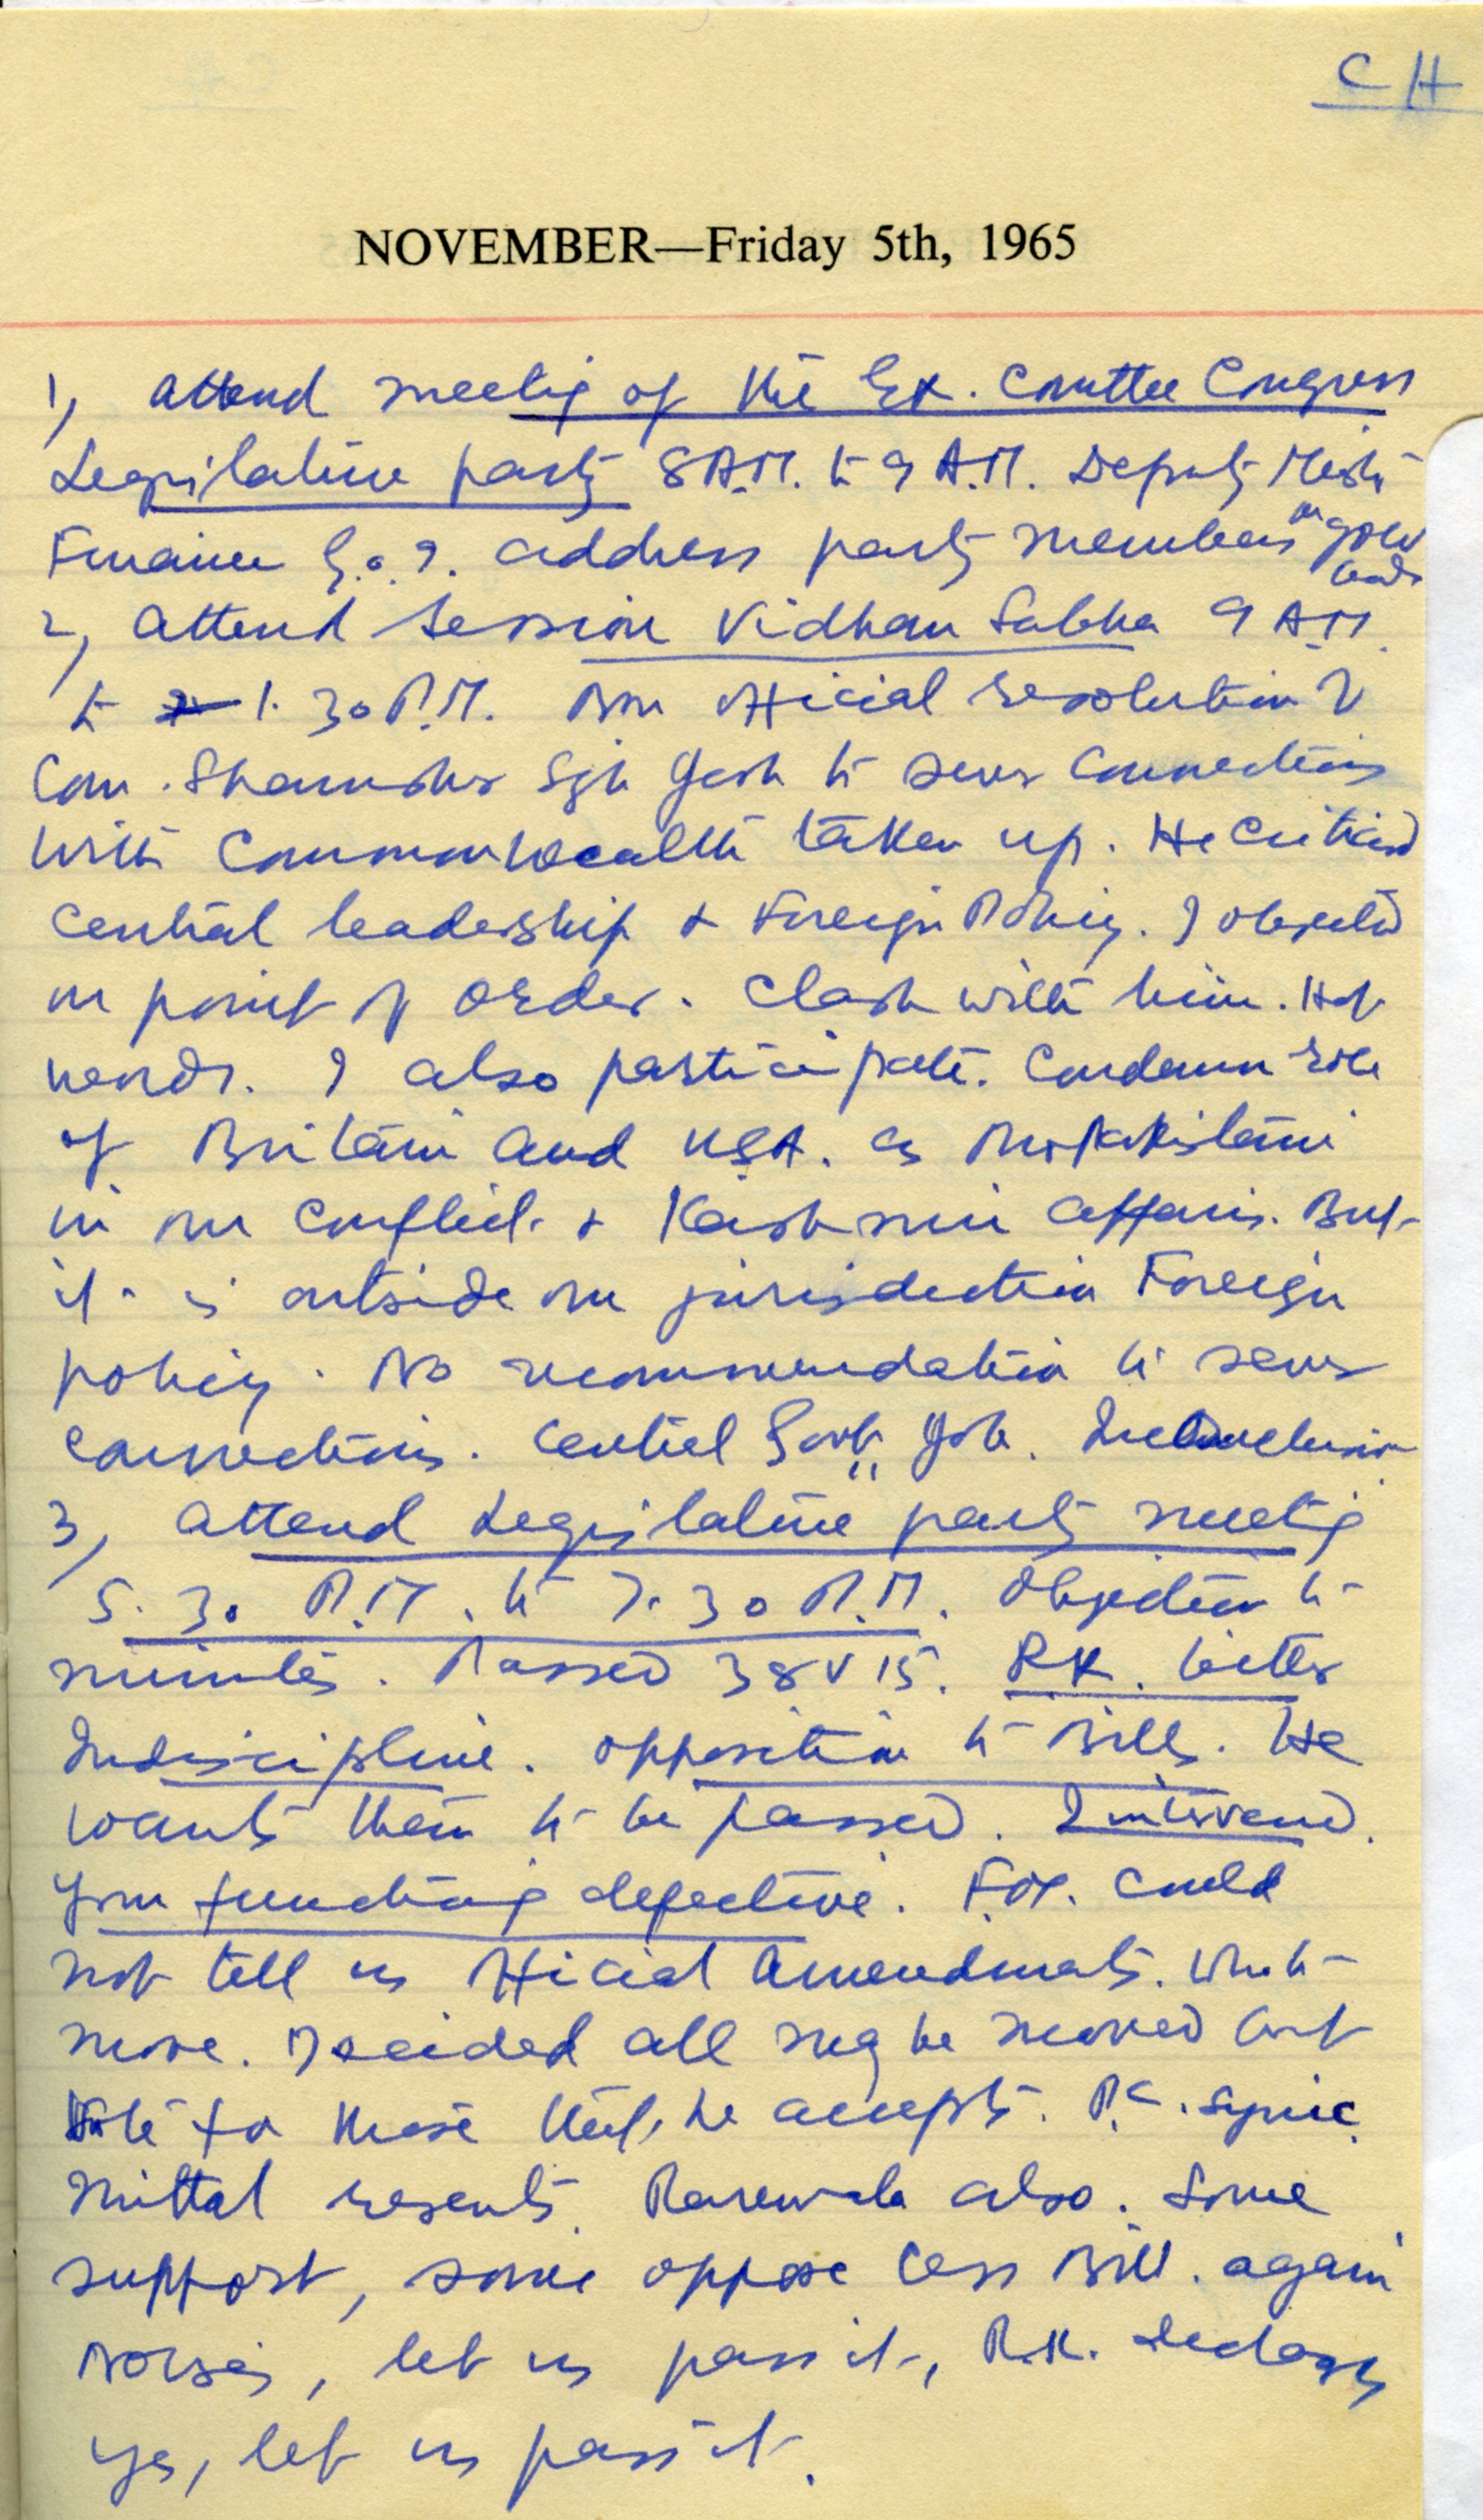 CH
NOVEMBER—Friday 5th, 1965
1, Attend meeting of the Ex. Comttee Congress
Legislative party 8 A.M. to 9 A.M. Deputy
Finance G.O.I. address party members on gold
bonds
2, Attend session Vidhan Sabha 9 A.M.
to 1.30 P.M. Non official resolution of
Com. Shamsher Sgh Josh to sever connections
with Commonwealth taken up. He criticised
central leadership & Foreign Policy. I objected
on point of order. Clash with him. Hot
words. I also participate. Condemn role
of Britain and USA. as Pro Pakistani
in our conflict & Kashmir affairs. But
it is outside our jurisdiction Foreign
policy. No recommendation to sever
connections. Central Govt. Job. Inconclusive
3, Attend Legislative party meeting
5.30 P.M. to 7.30 P.M. Objection to
minutes. Passed 38 V 15. R.K. bitter
Indiscipline. opposition to Bills. He
wants them to be passed. I intervene.
Your functioning defective. F.M. could
not tell us official Amendments. Who to
move. Decided all may be moved but
vote for those that he accepts. P.C.
Mittal resents. Rarewala also. Some
support, some oppose Cess Bill. again
noises, let us pass it, R.K.
yes, let us pass it.